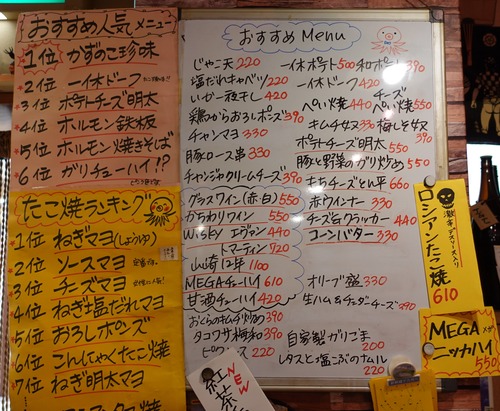 おすすめ人気メニュー
1位 かずのこ珍味
2位 一休ドーフ
3位 ポテトチーズ明太
4位 ホルモン鉄板
5位 ホルモン焼きそば
6位 ガリチューハイ!?
たこ焼ランキング
1位 ねぎマヨ(しょうゆ)
2位 ソースマヨ
3位 チーズマヨ
4位 ねぎ塩だれマヨ
5位 おろしポンズ
6位 こんにゃくたこ焼
7位 ねぎ明太マヨ
おすすめ Menu
じゃこ天 220
塩だれキャベツ 220
いか一夜干し 420
鶏からおろしポンズ 390
チャンマヨ 330
豚ロース串 330
チャンジャクリームチーズ 390
グラスワイン(赤・白) 550
かちわりワイン 550
Wisky エヴァン 440
トマーティン 720
山崎12年 1100
MEGAチューハイ 610
甘酒チューハイ 420
おくらのキムチ炒め 390
タコワサ梅和 390
ピクルス 220
一休ポテト 500
一休ドーフ 420
ぺい焼 440
チーズぺい焼 550
キムチ奴 330
梅しそ奴
390
ポテトチーズ明太 550
豚と野菜のガリ炒め 550
もちチーズとん平 660
赤ウインナー 330
チーズ&クラッカー 440
コーンバター 330
オリーブ盛 330
生ハム&チェダーチーズ 390
自家製ガリごま 200
レタスと塩こぶのナムル 220
激辛デスソース入り
ロシアンたこ焼
610
MEGAメガ
ニッカハイ
550
NEW
紅茶